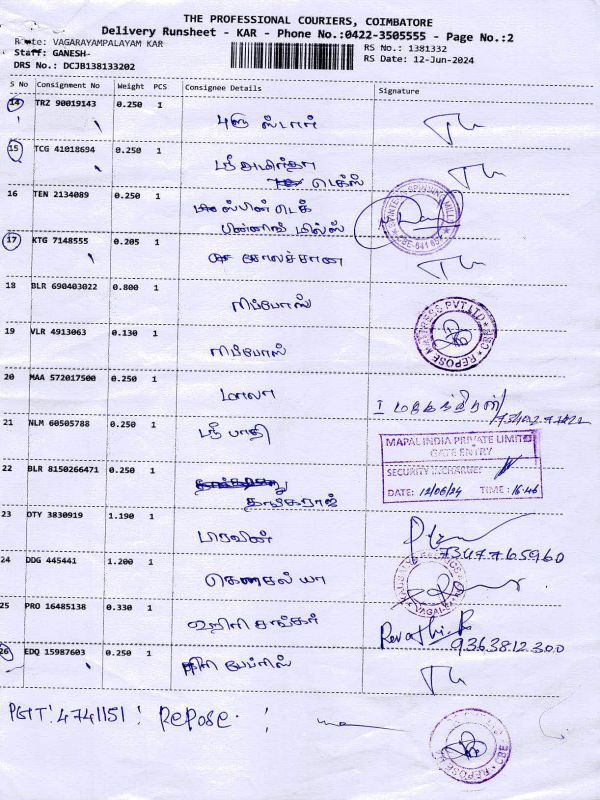 THE PROFESSIONAL COURIERS, COIMBATORE
Delivery Runsheet - KAR - Phone No.:0422-3505555 - Page No.:2
Route: VAGARAYAMPALAYAM KAR
RS No.: 1381332
Staff: GANESH-
RS Date: 12-Jun-2024
DRS No.: DCJB138133202
S No Consignment No Weight PCS Consignee Details Signature
14 TRZ 90019143 0.250 1
ஸ்டார்
15 TCG 41018694 0.250 1
ஸ்ரீ
டெக்ஸ்
16 TEN 2134089 0.250 1
மில்ஸ்
17 KTG 7148555 0.205 1
18 BLR 690403022 0.800 1
ரிப்போஸ்
REPOSE MATTRESS PVT LTD * CBE *
19 VLR 4913063 0.130 1
ரிப்போஸ்
20 MAA 572017500 0.250 1
மாலா
21 NLM 60505788 0.250 1
ஸ்ரீ
MAPAL INDIA PRIVATE LIMITED
GATE ENTRY
SECURITY INCHARGE
DATE: 12/06/24 TIME: 16:46
22 BLR 8150266471 0.250 1
தங்கராஜ்
23 OTY 3830919 1.190 1
பிரவின்
7347765960
24 DDG 445441 1.200 1
25 PRO 16485138 0.330 1
ஹரி சங்கர்
Revathi.R
9363812300
26 EDQ 15987603 0.250 1
PGIT: 4741151 : Repose :